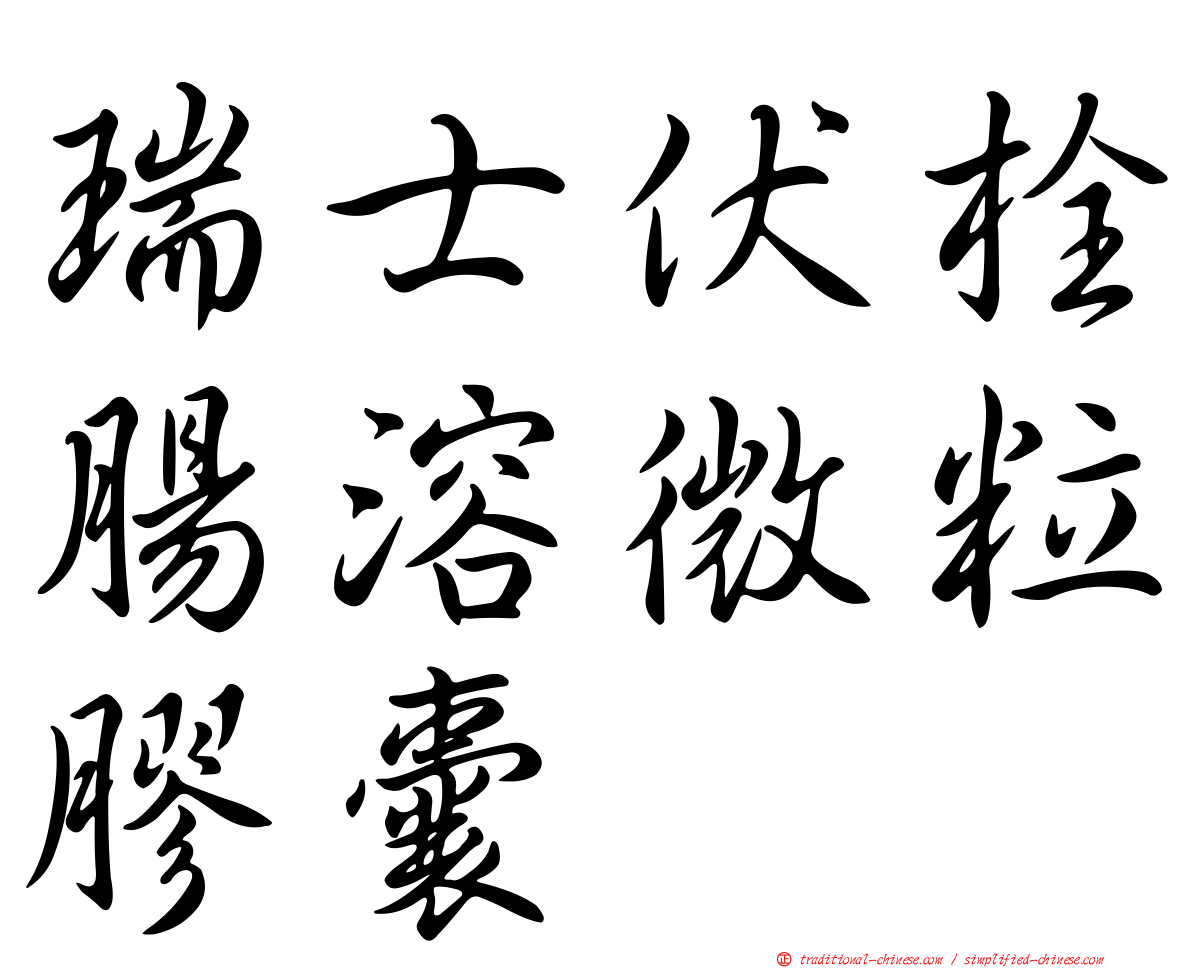 瑞士伏栓
腸溶微粒
膠囊
正 traditional-chinese.com / simplified-chinese.com